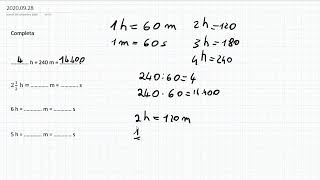 2020.09.28
Completa
4 h = 240 m = 14400 s
2 1/2 h = ............ m = ............ s
6 h = ............ m = ............ s
5 h = ............ m = ............ s
1 h = 60 m
1 m = 60 s
2 h = 120
3 h = 180
4 h = 240
240 : 60 = 4
240 · 60 = 14400
2 h = 120 m
1